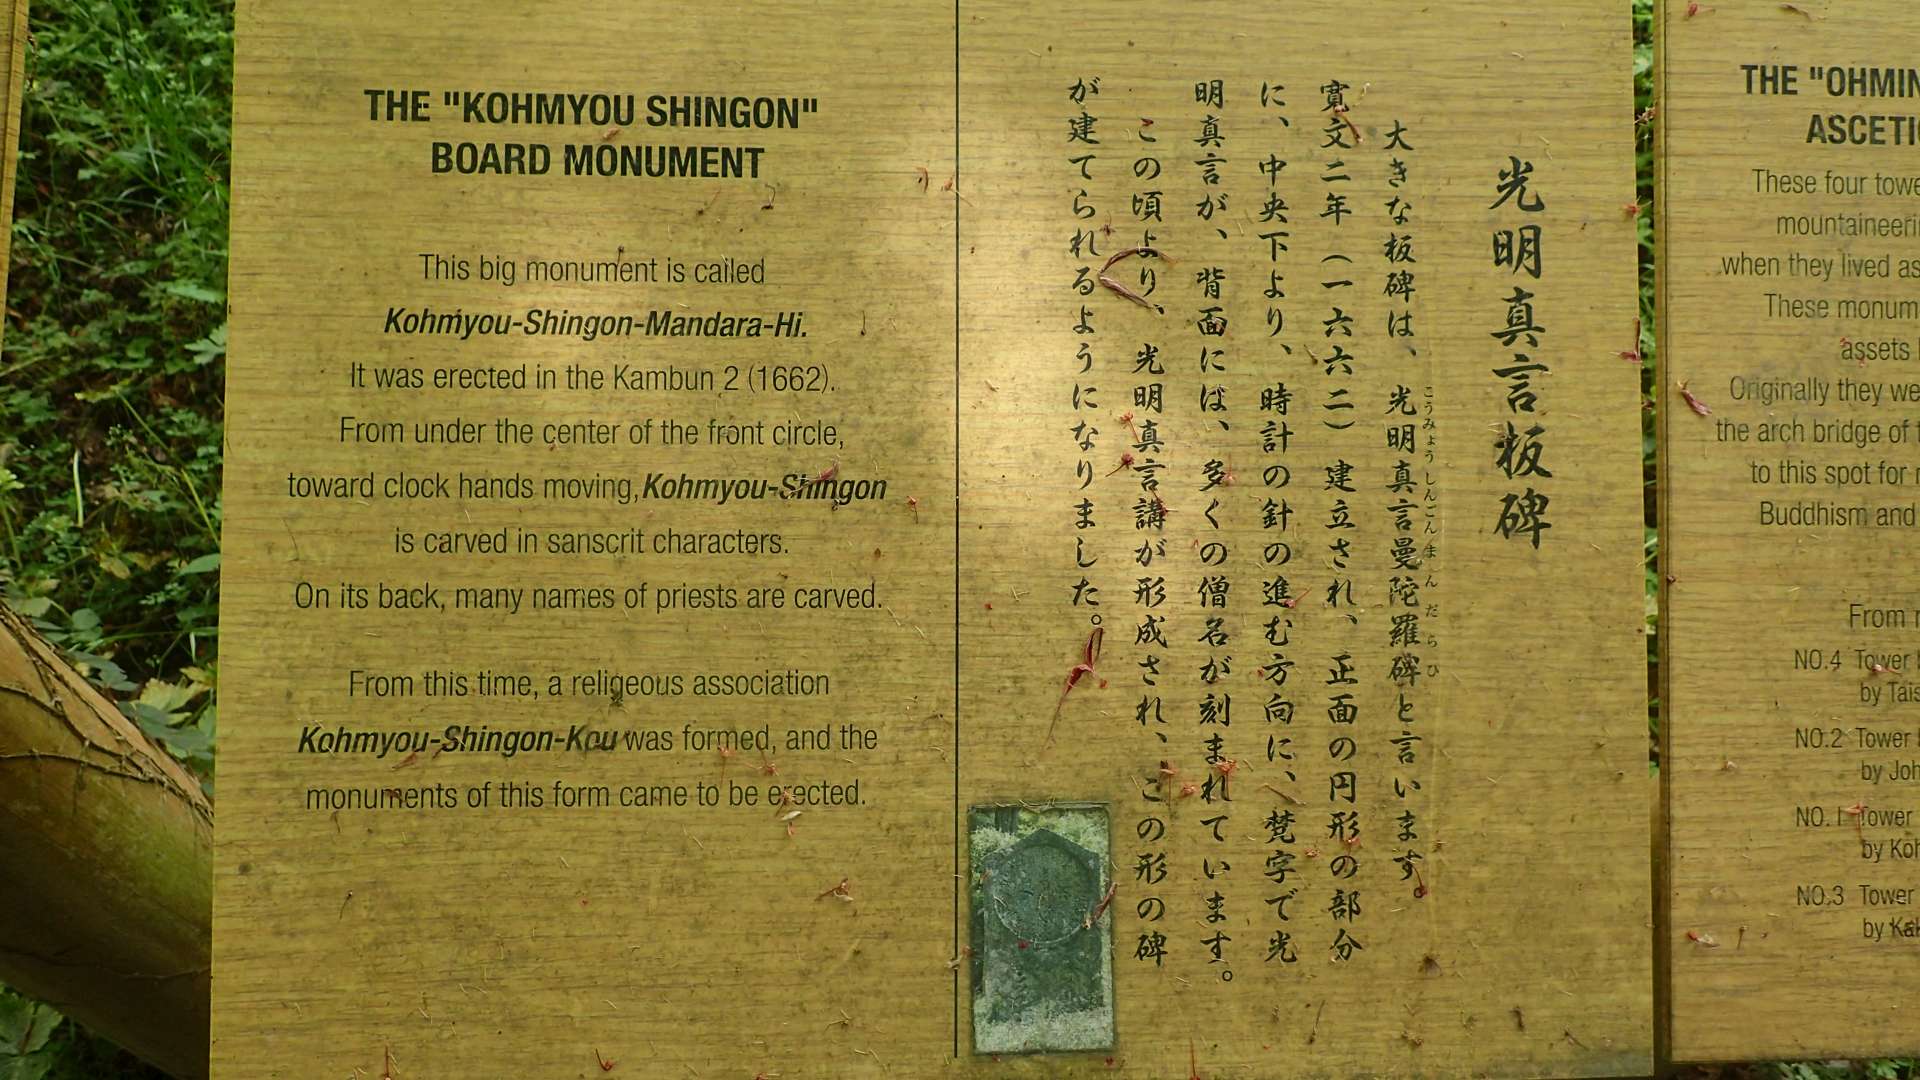 THE "KOHMYOU SHINGON"
BOARD MONUMENT
This big monument is called
Kohmyou-Shingon-Mandara-Hi.
It was erected in the Kambun 2 (1662).
From under the center of the front circle,
toward clock hands moving, Kohmyou-Shingon
is carved in sanscrit characters.
On its back, many names of priests are carved.
From this time, a religeous association
Kohmyou-Shingon-Kou was formed, and the
monuments of this form came to be erected.
光明真言板碑
大きな板碑は、光明真言曼陀羅碑と言います。
こうみょうしんごんまんだらひ
寛文二年（一六六二）建立され、正面の円形の部分
に、中央下より、時計の針の進む方向に、梵字で光
明真言が、背面には、多くの僧名が刻まれています。
この頃より、光明真言講が形成され、この形の碑
が建てられるようになりました。
THE "OHMIN
ASCETI
These four towe
mountaineeri
when they lived as
These monum
assets
Originally they we
the arch bridge of
to this spot for
Buddhism and
From
NO.4 Tower
by Tais
NO.2 Tower
by Joh
NO.1 Tower
by Koh
NO.3 Tower
by Kak